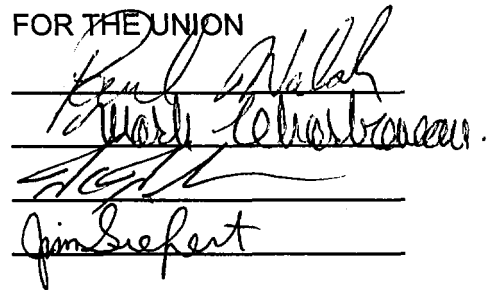 FOR THE UNION
Paul Walsh
Mark Charbonneau.
Jim Siefert